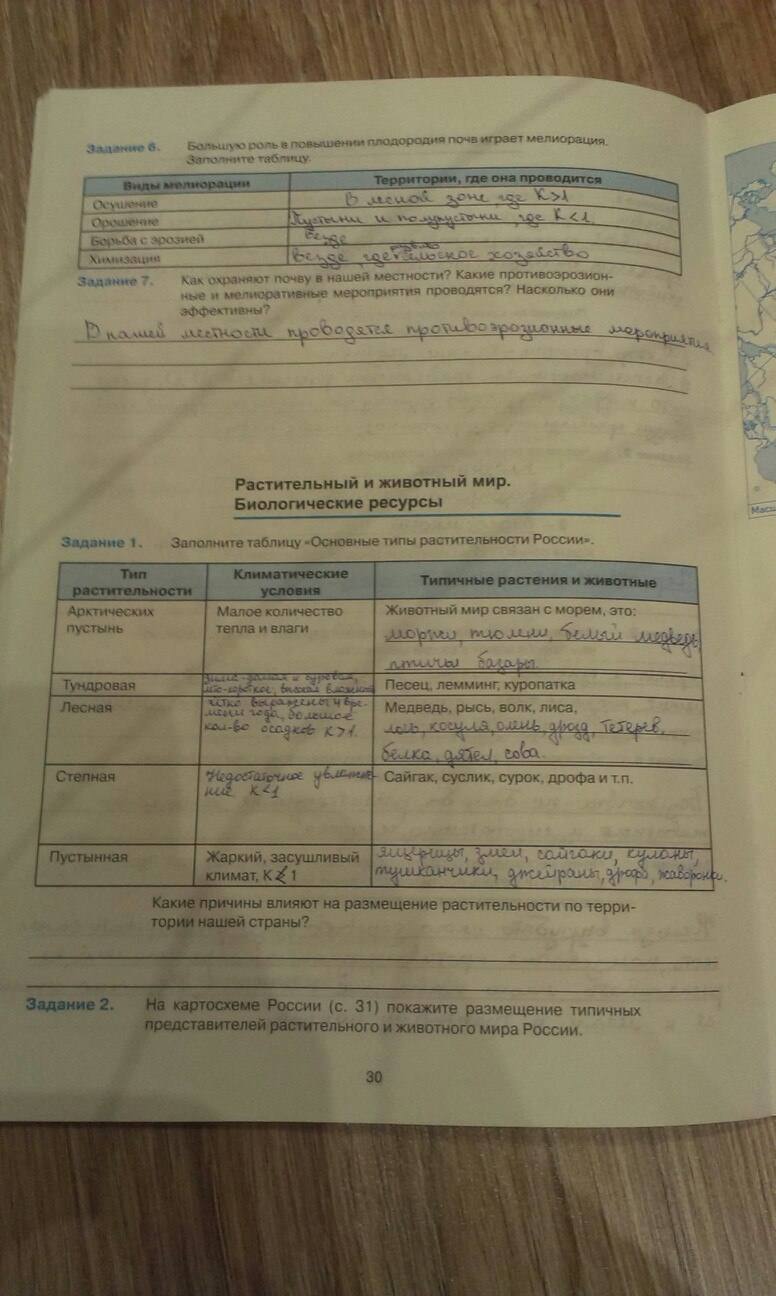 Задание 6. Большую роль в повышении плодородия почв играет мелиорация.
Заполните таблицу.
Виды мелиорации Территории, где она проводится
Осушение В лесной зоне, где К>1
Орошение Пустыни и полупустыни, где К<1
Борьба с эрозией везде
Химизация везде, где сельское хозяйство
Задание 7. Как охраняют почву в нашей местности? Какие противоэрозион-
ные и мелиоративные мероприятия проводятся? Насколько они
эффективны?
В нашей местности проводятся противоэрозионные мероприятия
Растительный и животный мир.
Биологические ресурсы
Задание 1. Заполните таблицу «Основные типы растительности России».
Тип растительности Климатические условия Типичные растения и животные
Арктических пустынь Малое количество тепла и влаги Животный мир связан с морем, это:
моржи, тюлени, белый медведь,
птичьи базары.
Тундровая Зима-долгая и суровая, лето-короткое, высокая влажность Песец, лемминг, куропатка
Лесная чётко выражены 4 времени года, большое кол-во осадков К>1. Медведь, рысь, волк, лиса,
лось, косуля, олень, дрозд, тетерев,
белка, дятел, сова.
Степная Недостаточное увлажнение К<1 Сайгак, суслик, сурок, дрофа и т.п.
Пустынная Жаркий, засушливый климат, К < 1 ящерицы, змеи, сайгаки, куланы,
тушканчики, джейраны, дрофа, жаворонки.
Какие причины влияют на размещение растительности по терри-
тории нашей страны?
Задание 2. На картосхеме России (с. 31) покажите размещение типичных
представителей растительного и животного мира России.
30